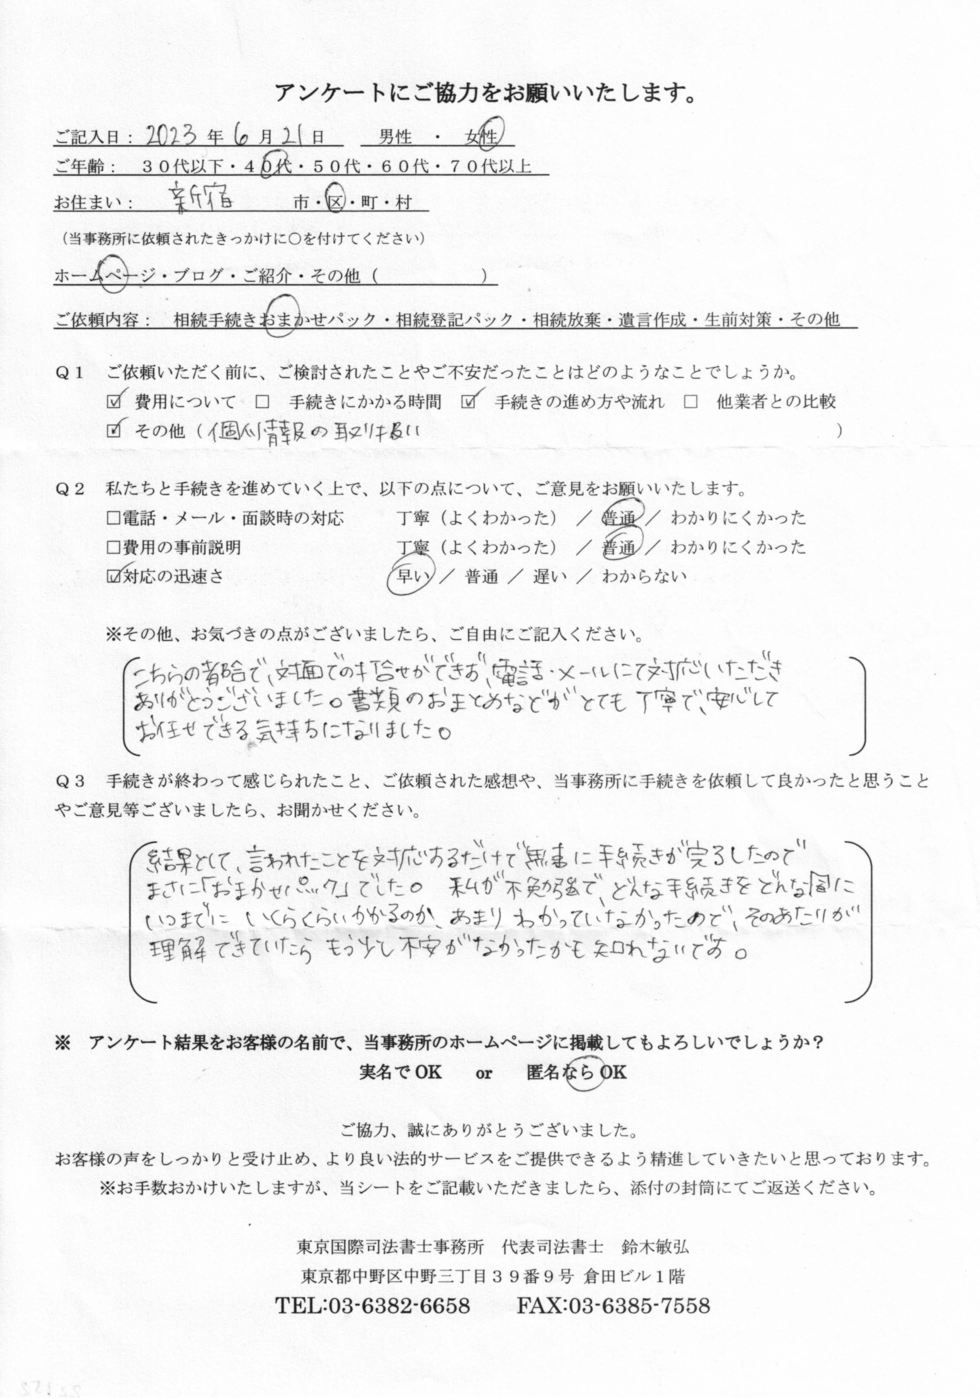 アンケートにご協力をお願いいたします。
ご記入日： 2023 年 6 月 21 日　男性 ・ 女性
ご年齢：　３０代以下・４０代・５０代・６０代・７０代以上
お住まい：　新宿　市・区・町・村
（当事務所に依頼されたきっかけに○を付けてください）
ホームページ・ブログ・ご紹介・その他（　　　　　　）
ご依頼内容：　相続手続きおまかせパック・相続登記パック・相続放棄・遺言作成・生前対策・その他
Ｑ１　ご依頼いただく前に、ご検討されたことやご不安だったことはどのようなことでしょうか。
☑ 費用について　□ 手続きにかかる時間　☑ 手続きの進め方や流れ　□ 他業者との比較
☑ その他（個人情報の取り扱い　　　　　　）
Ｑ２　私たちと手続きを進めていく上で、以下の点について、ご意見をお願いいたします。
□電話・メール・面談時の対応　丁寧（よくわかった）　／　普通　／　わかりにくかった
□費用の事前説明　丁寧（よくわかった）　／　普通　／　わかりにくかった
☑対応の迅速さ　早い　／　普通　／　遅い　／　わからない
※その他、お気づきの点がございましたら、ご自由にご記入ください。
こちらの都合で、対面での打合せができず、電話・メールにて対応いただき
ありがとうございました。書類のおまとめなどがとても丁寧で、安心して
お任せできる気持ちになりました。
Ｑ３　手続きが終わって感じられたこと、ご依頼された感想や、当事務所に手続きを依頼して良かったと思うこと
やご意見等ございましたら、お聞かせください。
結果として、言われたことを対応するだけで無事に手続きが完了したので
まさに「おまかせパック」でした。 私が不勉強で、どんな手続きをどんな風に
いつまでに いくらくらいかかるのか、あまり わかっていなかったので、そのあたりが
理解できていたら もう少し不安がなかったかも知れないです。
※　アンケート結果をお客様の名前で、当事務所のホームページに掲載してもよろしいでしょうか？
実名で OK　　or　　匿名なら OK
ご協力、誠にありがとうございました。
お客様の声をしっかりと受け止め、より良い法的サービスをご提供できるよう精進していきたいと思っております。
※お手数おかけいたしますが、当シートをご記載いただきましたら、添付の封筒にてご返送ください。
東京国際司法書士事務所　代表司法書士　鈴木敏弘
東京都中野区中野三丁目３９番９号 倉田ビル１階
TEL:03-6382-6658　　FAX:03-6385-7558